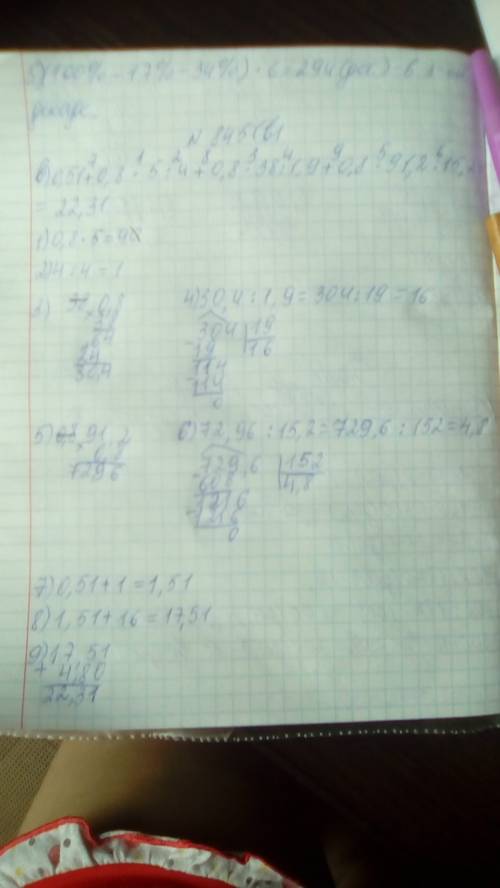 (100% - 17% - 34%) · 6 = 294 (
N 845 (в)
в) 0,51 + 0,8 · 5 : 4 + 0,8 · 38 : 1,9 + 0,8 · 91,2 : 15,2
= 22,31
1) 0,8 · 5 = 4
2) 4 : 4 = 1
3)
30,4
4) 30,4 : 1,9 = 304 : 19 = 16
304 | 19
19 16
114
114
0
5) 91,2
× 0,8
7296
6) 72,96 : 15,2 = 729,6 : 152 = 4,8
729,6 | 152
608 4,8
1216
1216
0
7) 0,51 + 1 = 1,51
8) 1,51 + 16 = 17,51
9) 17,51
+ 4,80
22,31